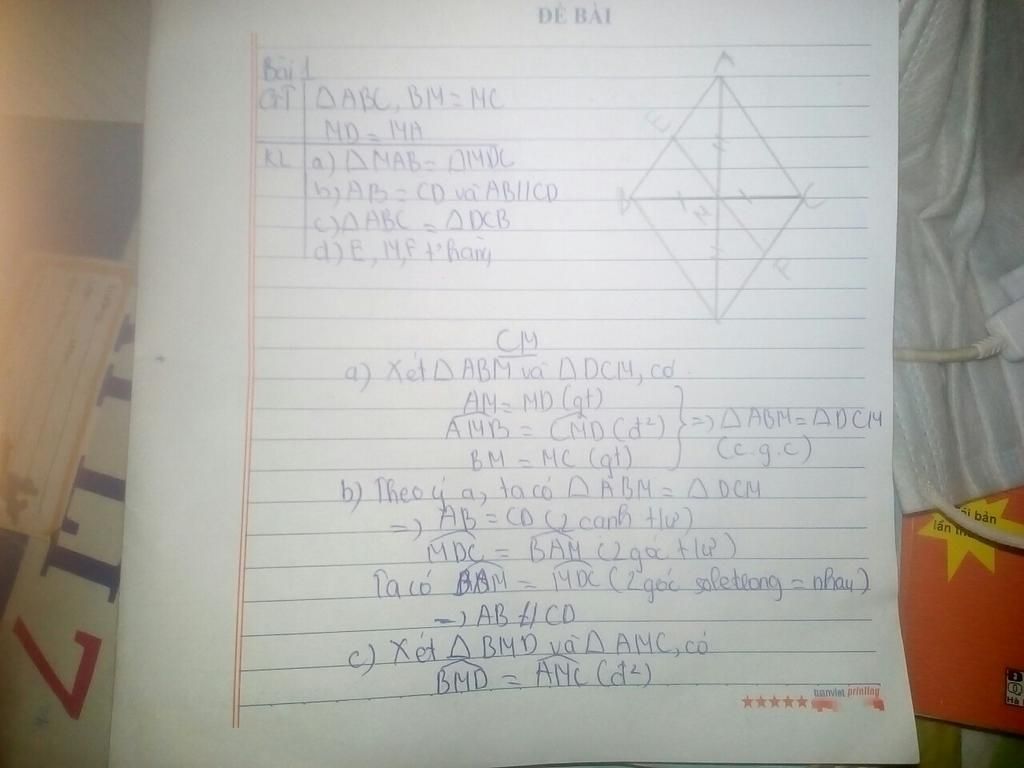 ĐỀ BÀI
Bài 1
GT ΔABC, BM = MC
MD = MA
KL a) ΔMAB = ΔMDC
b) AB = CD và AB//CD
c) ΔABC = ΔDCB
d) E, M, F t' hàng
A
E
B
M
C
F
CM
a) Xét ΔABM và ΔDCM, có
AM = MD (gt)
AMB = CMD (đ²) } => ΔABM = ΔDCM
BM = MC (gt) (c.g.c)
b) Theo ý a, ta có ΔABM = ΔDCM
=> AB = CD (2 cạnh t/ư)
MDC = BAM (2 góc t/ư)
Ta có BAM = MDC (2 góc so le trong = nhau)
=> AB // CD
c) Xét ΔBMD và ΔAMC, có
BMD = AMC (đ²)
tranviet printing
ái bản
lần th